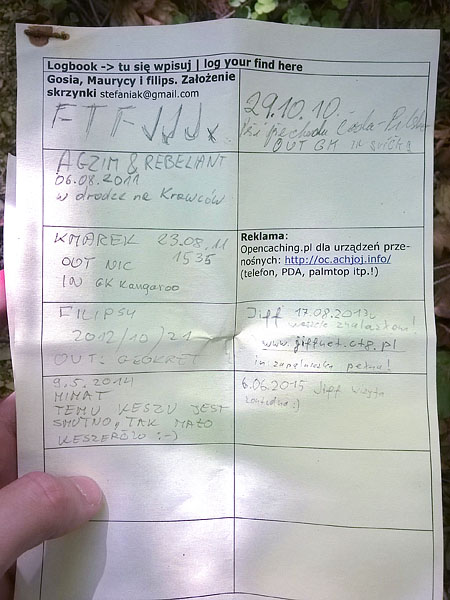 Logbook -> tu się wpisuj | log your find here
Gosia, Maurycy i filips. Założenie
skrzynki stefaniak@gmail.com
FTF
29.10.10.
OUT GK IN
AGZIM & REBELIANT
06.08.2011
w drodze na Krawców
KMAREK 23.08.11
OUT NIC 1535
IN GK Kangaroo
Reklama:
Opencaching.pl dla urządzeń prze-
nośnych: http://oc.achjoj.info/
(telefon, PDA, palmtop itp.!)
FILIPSU
2012/10/21
OUT: GEOKRET
Jiff 17.08.2013r.
www.jiffnet.ct8.pl
in zapalniczka pełna!
9.5.2014
MIMAT
TEMU KESZU JEST
SMUTNO, TAK MAŁO
KESZERÓW :-)
6.06.2015 Jiff wizyta
kontrolna :)